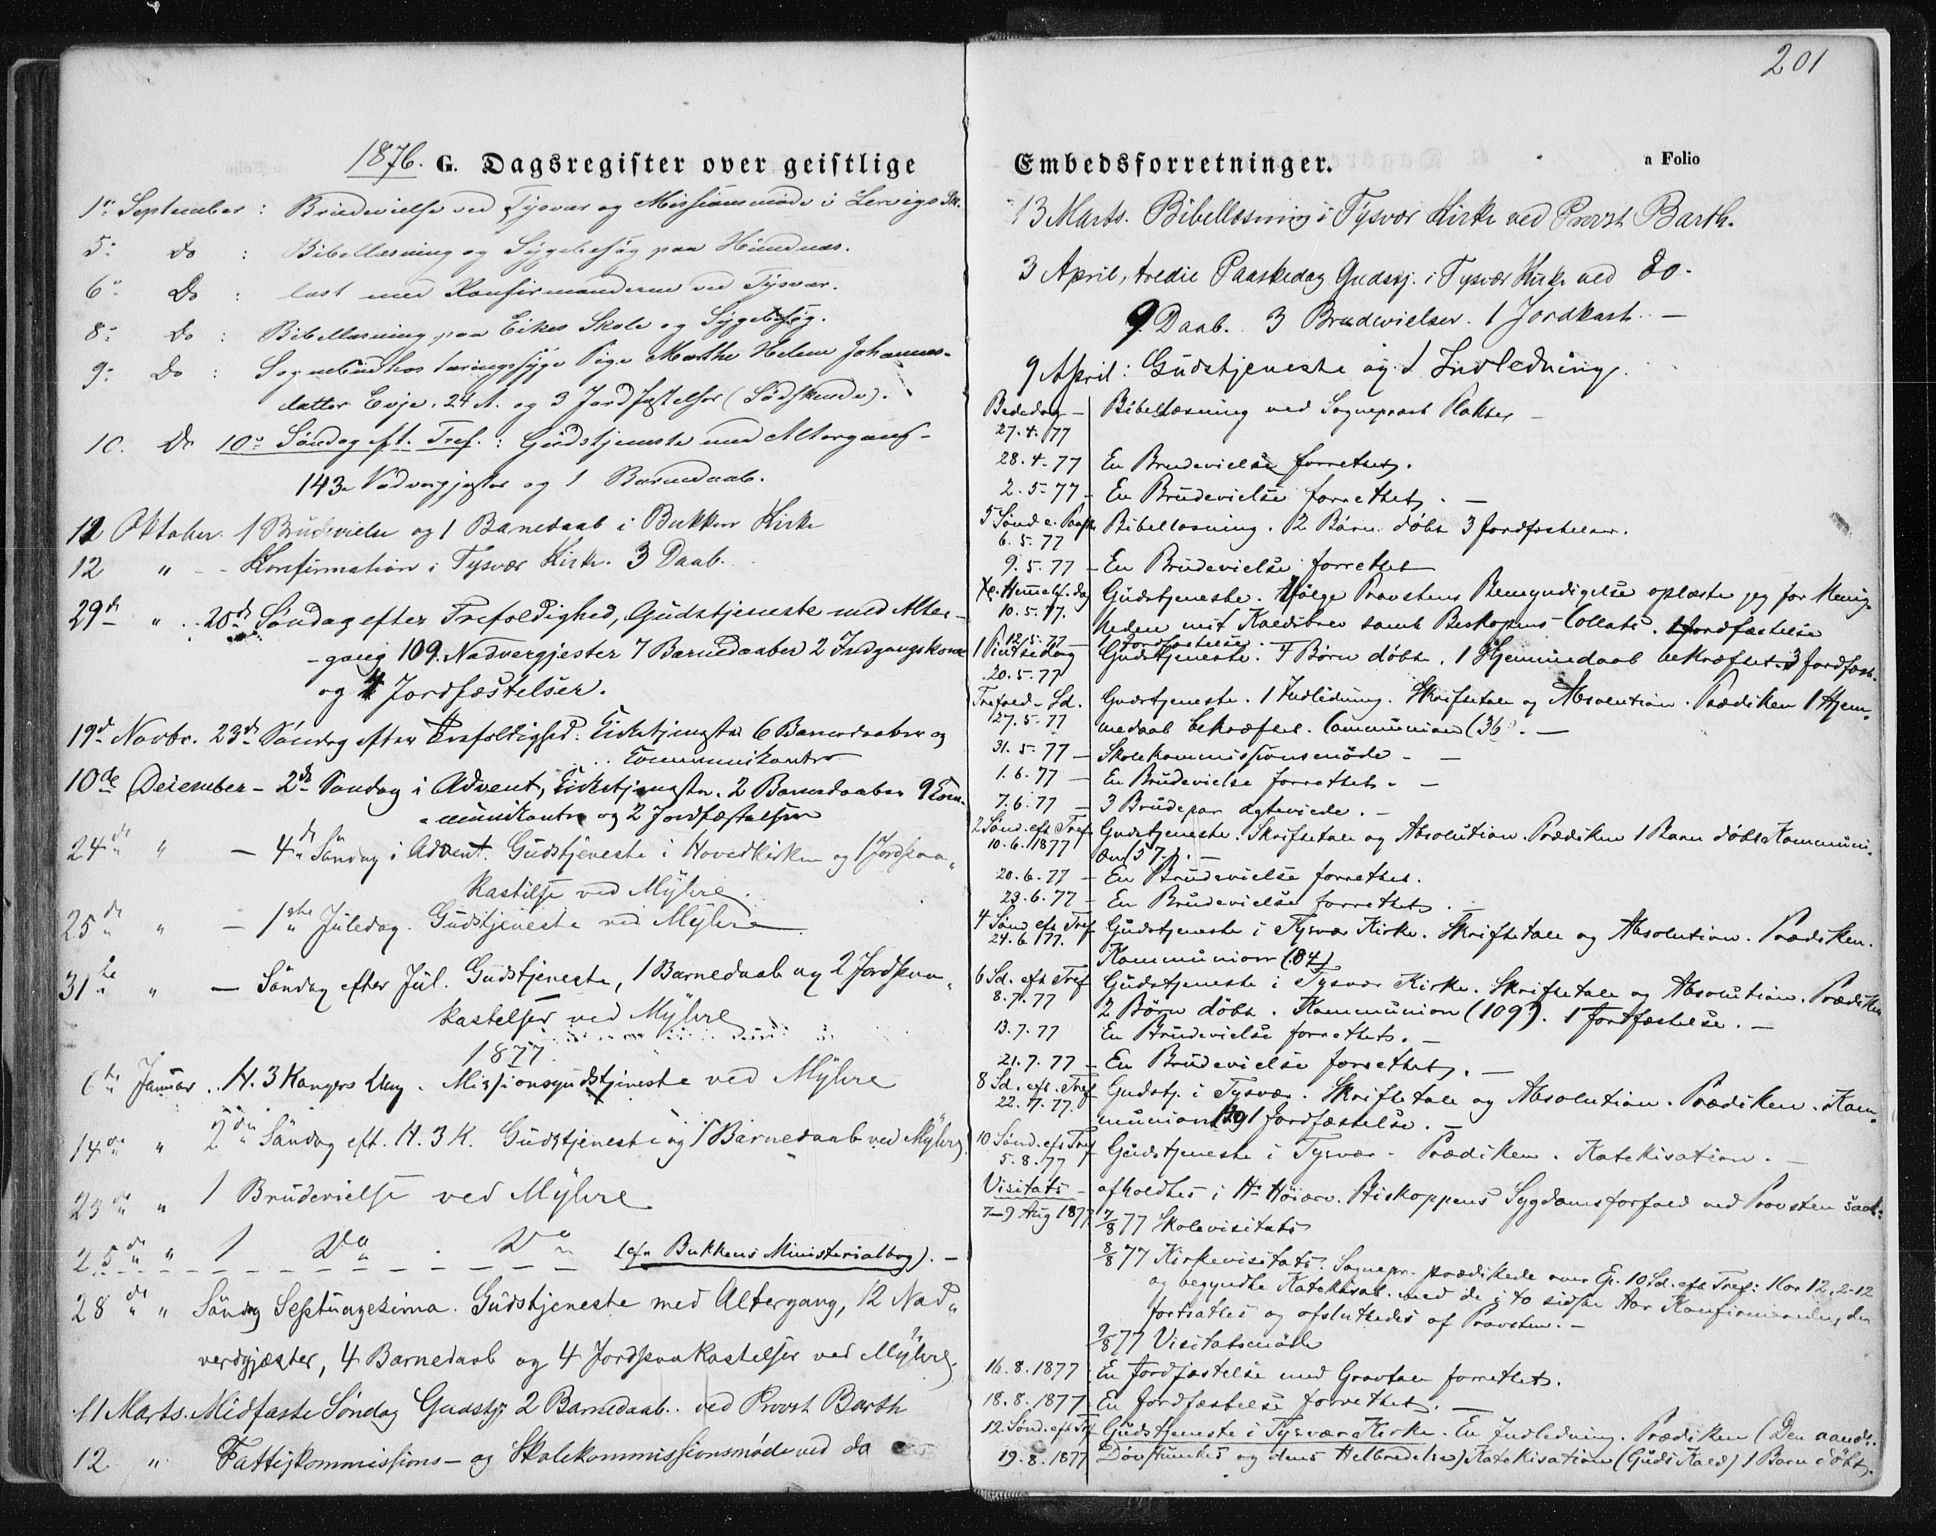 1876. G. Dagsregister over geistlige
1ste September : Brudevielse ved Tysvær og Missionsmøde i Lervigs Sk.
5te Do : Bibellæsning og Sygebesøg paa Hindnæs.
6te Do : læst med Konfirmanderne ved Tysvær.
8de Do : Bibellæsning paa Eikes Skole og Sygebesøg.
9de Do : Sognebud hos tæringssyge Pige Marthe Helene Johannes-
datter Evje, 24 A. og 3 Jordfæstelser
10. Do 10de Søndag eft. Tref. : Gudstjeneste med Altergang -
143 Nadvergjæster og 1 Barnedaab.
12 Oktober. 1 Brudevielse og 1 Barnedaab i Bukken Kirke
12 " - - Konfirmation i Tysvær Kirke. 3 Daab.
29de " . 20de Søndag efter Trefoldighed, Gudstjeneste med Alter-
-gang 109 Nadvergjester 7 Barnedaaber 2 Indgangskone
og 4 Jordfæstelser.
19de Novbr. 23de Søndag efter Trefoldighed. Kirketjeneste 6 Barnedaaber og
Communikanter
10de December - 2den Søndag i Advent, Kirketjeneste. 2 Barnedaaber 9 Com-
-munikanter og 2 Jordfæstelser
24de " - 4de Søndag i Advent. Gudstjeneste i Hovedkirken og 1 Jordpaa-
kastelse ved Myhre.
25de " - 1ste Juledag. Gudstjeneste ved Myhre
31te " - Søndag efter Jul. Gudstjeneste, 1 Barnedaab og 2 Jordpaa-
kastelser ved Myhre
1877.
6te Januar . H. 3 Kongers Dag. Missionsgudstjeneste ved Myhre
14de " 2den Søndag eft. H. 3 K. Gudstjeneste og 1 Barnedaab ved Myhre
23de " 1 Brudevielse ved Myhre
25de " 1 Do . Do (cfr Bukkens Ministerialbog). -
28de " Søndag Septuagesima. Gudstjeneste med Altergang, 12 Nad-
vergjæster, 4 Barnedaab og 4 Jordpaakastelser ved Myhre.
11 Marts. Midfaste Søndag Gudstj. 2 Barnedaab. ved Provst Barth
12 " Fattigkommissions- og Skolekommissionsmøde ved do
201
Embedsforretninger. a Folio
13 Marts. Bibellæsning i Tysvær Kirke ved Provst Barth.
3 April, tredie Paaskedag Gudstj. i Tysvær Kirke ved do.
9 Daab. 3 Brudevielser. 1 Jordkast. -
9 April : Gudstjeneste og 1 Indledning.
Bededag - Bibellæsning ved Sogneprest
27.4.77
28.4.77 En Brudevielse forrettet.
2.5.77 - En Brudevielse forrettet. -
5 Sønd. e. Paaske Bibellæsning. 2 Børn døbt 3 Jordfæstelser.
6.5.77
9.5.77 - En Brudevielse forrettet
Xti Himmelf.dag Gudstjeneste. Ifølge Provstens Bemyndigelse oplæste jeg for Menig-
10.5.77. heden mit Kaldsbrev samt Biskopens Collats. 1 Jordfæstelse
12.5.77 Jordfæstelse
1 Pintsedag Gudstjeneste. 4 Børn døbt. 1 Hjemmedaab bekræftet. 3 Jordfæst.
20.5.77
Trefold. Sd. Gudstjeneste. 1 Indledning. Skriftetale og Absolution. Prædiken 1 Hjem-
27.5.77 medaab bekræftet. Communion (36). -
31.5.77 - Skolekommissionsmøde -
1.6.77 - En Brudevielse forrettet. -
7.6.77 - 3 Brudepar ægteviede. -
2 Sønd. eft Tref Gudstjeneste. Skriftetale og Absolution. Prædiken 1 Barn døbt. Kommuni-
10.6.1877 on (57). -
20.6.77 - En Brudevielse forrettet.
23.6.77 - En Brudevielse forrettet. -
4 Sønd eft Tref Gudstjeneste i Tysvær Kirke. Skriftetale og Absolution. Prædiken.
24.6.77. Kommunion (84)
6 Sd. eft Tref Gudstjeneste i Tysvær Kirke. Skriftetale og Absolution. Prædiken
8.7.77 2 Børn døbt. Kommunion (109). 1 Jordfæstelse. -
13.7.77 En Brudevielse forrettet. -
21.7.77 - En Brudevielse forrettet. -
8 Sd. eft. Tref Gudstj. i Tysvær. Skriftetale og Absolution. Prædiken. Kom-
22.7.77. munion 1 Jordfæstelse. -
10 Sønd. eft Tref Gudstjeneste i Tysvær - Prædiken. Katekisation. -
5.8.77
Visitats - afholdtes i Biskoppens Sygdomsforfald ved Provsten saal:
7-9 Aug 1877 7/8 77 Skolevisitats
8/8 77 Kirkevisitats. Sognepr. prædikede over Ep. 10 Sd. eft Tref: 1 Kor 12, 2-12
og begyndte Katekisat. med de i to sidste Aar Konfirmerede, der
fortsattes og afsluttedes af Provsten. -
9/8 77 Visitatsmøde
16.8.1877 En Jordfæstelse med Gravtale forrettet.
18.8.1877 En Jordfæstelse forrettet. -
12 Sønd. eft Tr Gudstjeneste i Tysvær Kirke. En Indledning. Prædiken (Den aande-
19.8.1877 Døvstumhed og dens Helbredelse) Katekisation (Guds Kald) 1 Barn døbt.